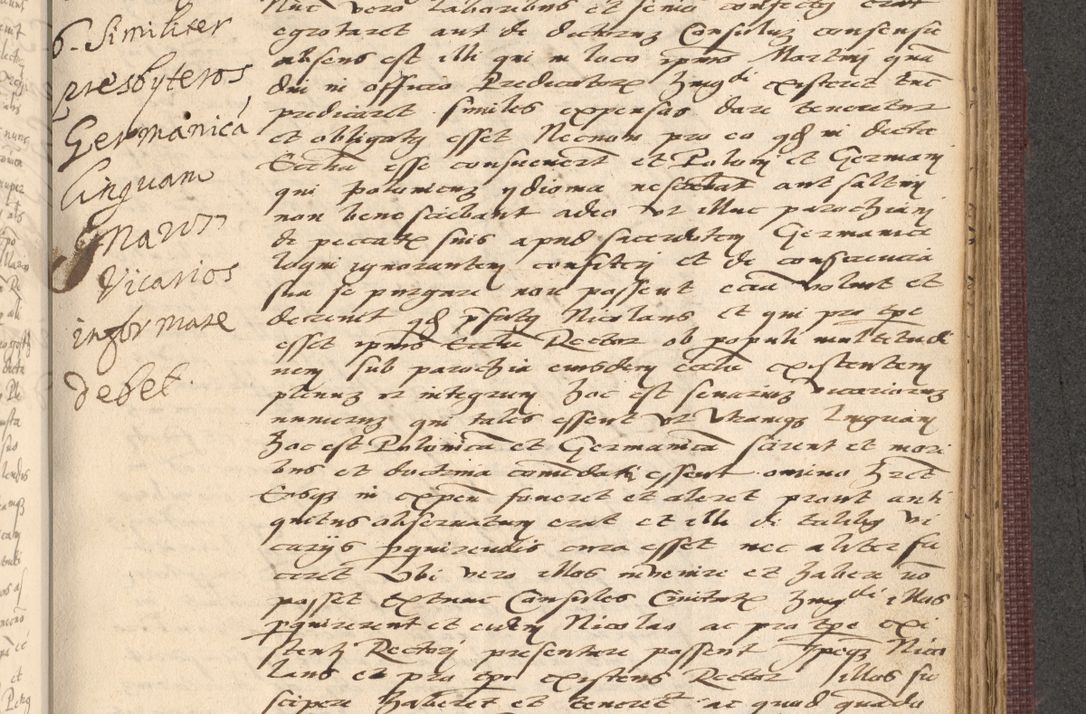 6. Similiter
presbyteros
Germanica
linguam
Vicarios
informare
debet
Nuc vero laboribus et senio confectus erat
egrotaret aut de dictoruz Consuluz consensu
absens est illi qui in loco ipius Martini qua
dni in officio Predicatorz existeret tuc
predicaret similes expensas dare teneretur
et obligatus esset Necnon pro eo qd in dicta
Ecctia esse consueuert et Poloni et Germani
qui polonicuz ydioma nesciebat aut saltim
non bene sciebant adeo ut illuc parochiani
de peccatis suis apud sacerdotem Germanice
loqui ignorantem confiteri et de consciencia
sua se purgare non possent ecia voluit et
decreuit qd pfatus Nicolaus et qui pro tpe
esset ipius Ecctie Rector ob populi multitudi
nem sub parochia eiusdem ecctie existentem
plenuz et integrum hoc est senariuz vicarioruz
numeruz qui tales essent ut utramqz linguam
hoc est Polonica et Germanica scirent et mori
bus et doctrina comedati essent omnino hret
Eosqz in expen foueret et aleret prout anti
quitus obseruatum erat et illi de talibus vi
carijs pquirendis cura esset nec aliter fa
ceret Ubi vero illos inuenire et habere no
posset extunc Consules Ciuitatis illos
pquirerent et eidem Nicolao ac pro tpe exi
stenti Rectori presentare possent Ipeqz Nico
laus et pro tpe existens Rector illos su
scipere haberet et teneret ac quod quando